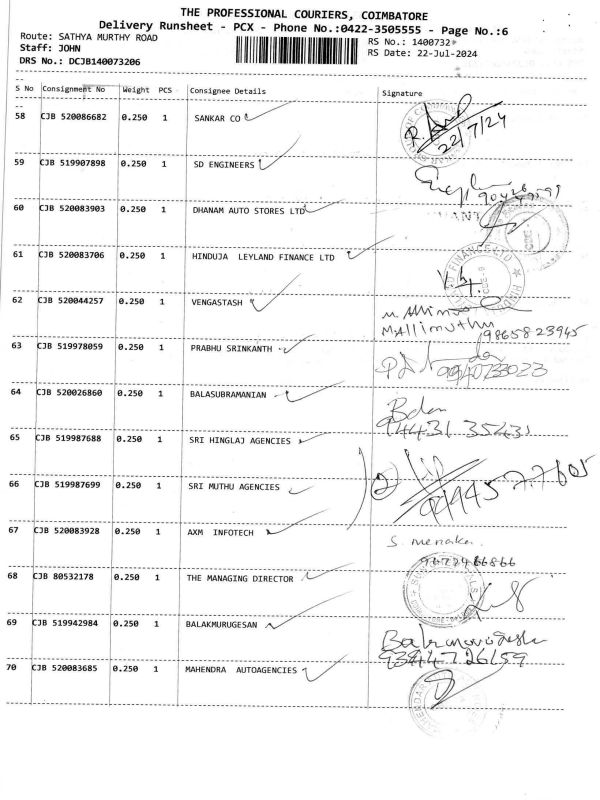 THE PROFESSIONAL COURIERS, COIMBATORE
Delivery Runsheet - PCX - Phone No.:0422-3505555 - Page No.:6
Route: SATHYA MURTHY ROAD
RS No.: 1400732
Staff: JOHN
RS Date: 22-Jul-2024
DRS No.: DCJB140073206
S No Consignment No Weight PCS Consignee Details Signature
58 CJB 520086682 0.250 1 SANKAR CO
22/7/24
59 CJB 519907898 0.250 1 SD ENGINEERS
60 CJB 520083903 0.250 1 DHANAM AUTO STORES LTD
61 CJB 520083706 0.250 1 HINDUJA LEYLAND FINANCE LTD
62 CJB 520044257 0.250 1 VENGASTASH
M. Allimuthu
9865823945
63 CJB 519978059 0.250 1 PRABHU SRINKANTH
9940733023
64 CJB 520026860 0.250 1 BALASUBRAMANIAN
Balan
94431 35431
65 CJB 519987688 0.250 1 SRI HINGLAJ AGENCIES
66 CJB 519987699 0.250 1 SRI MUTHU AGENCIES
2
67 CJB 520083928 0.250 1 AXM INFOTECH
S. Menaka.
68 CJB 80532178 0.250 1 THE MANAGING DIRECTOR
69 CJB 519942984 0.250 1 BALAKMURUGESAN
9344726159
70 CJB 520083685 0.250 1 MAHENDRA AUTOAGENCIES